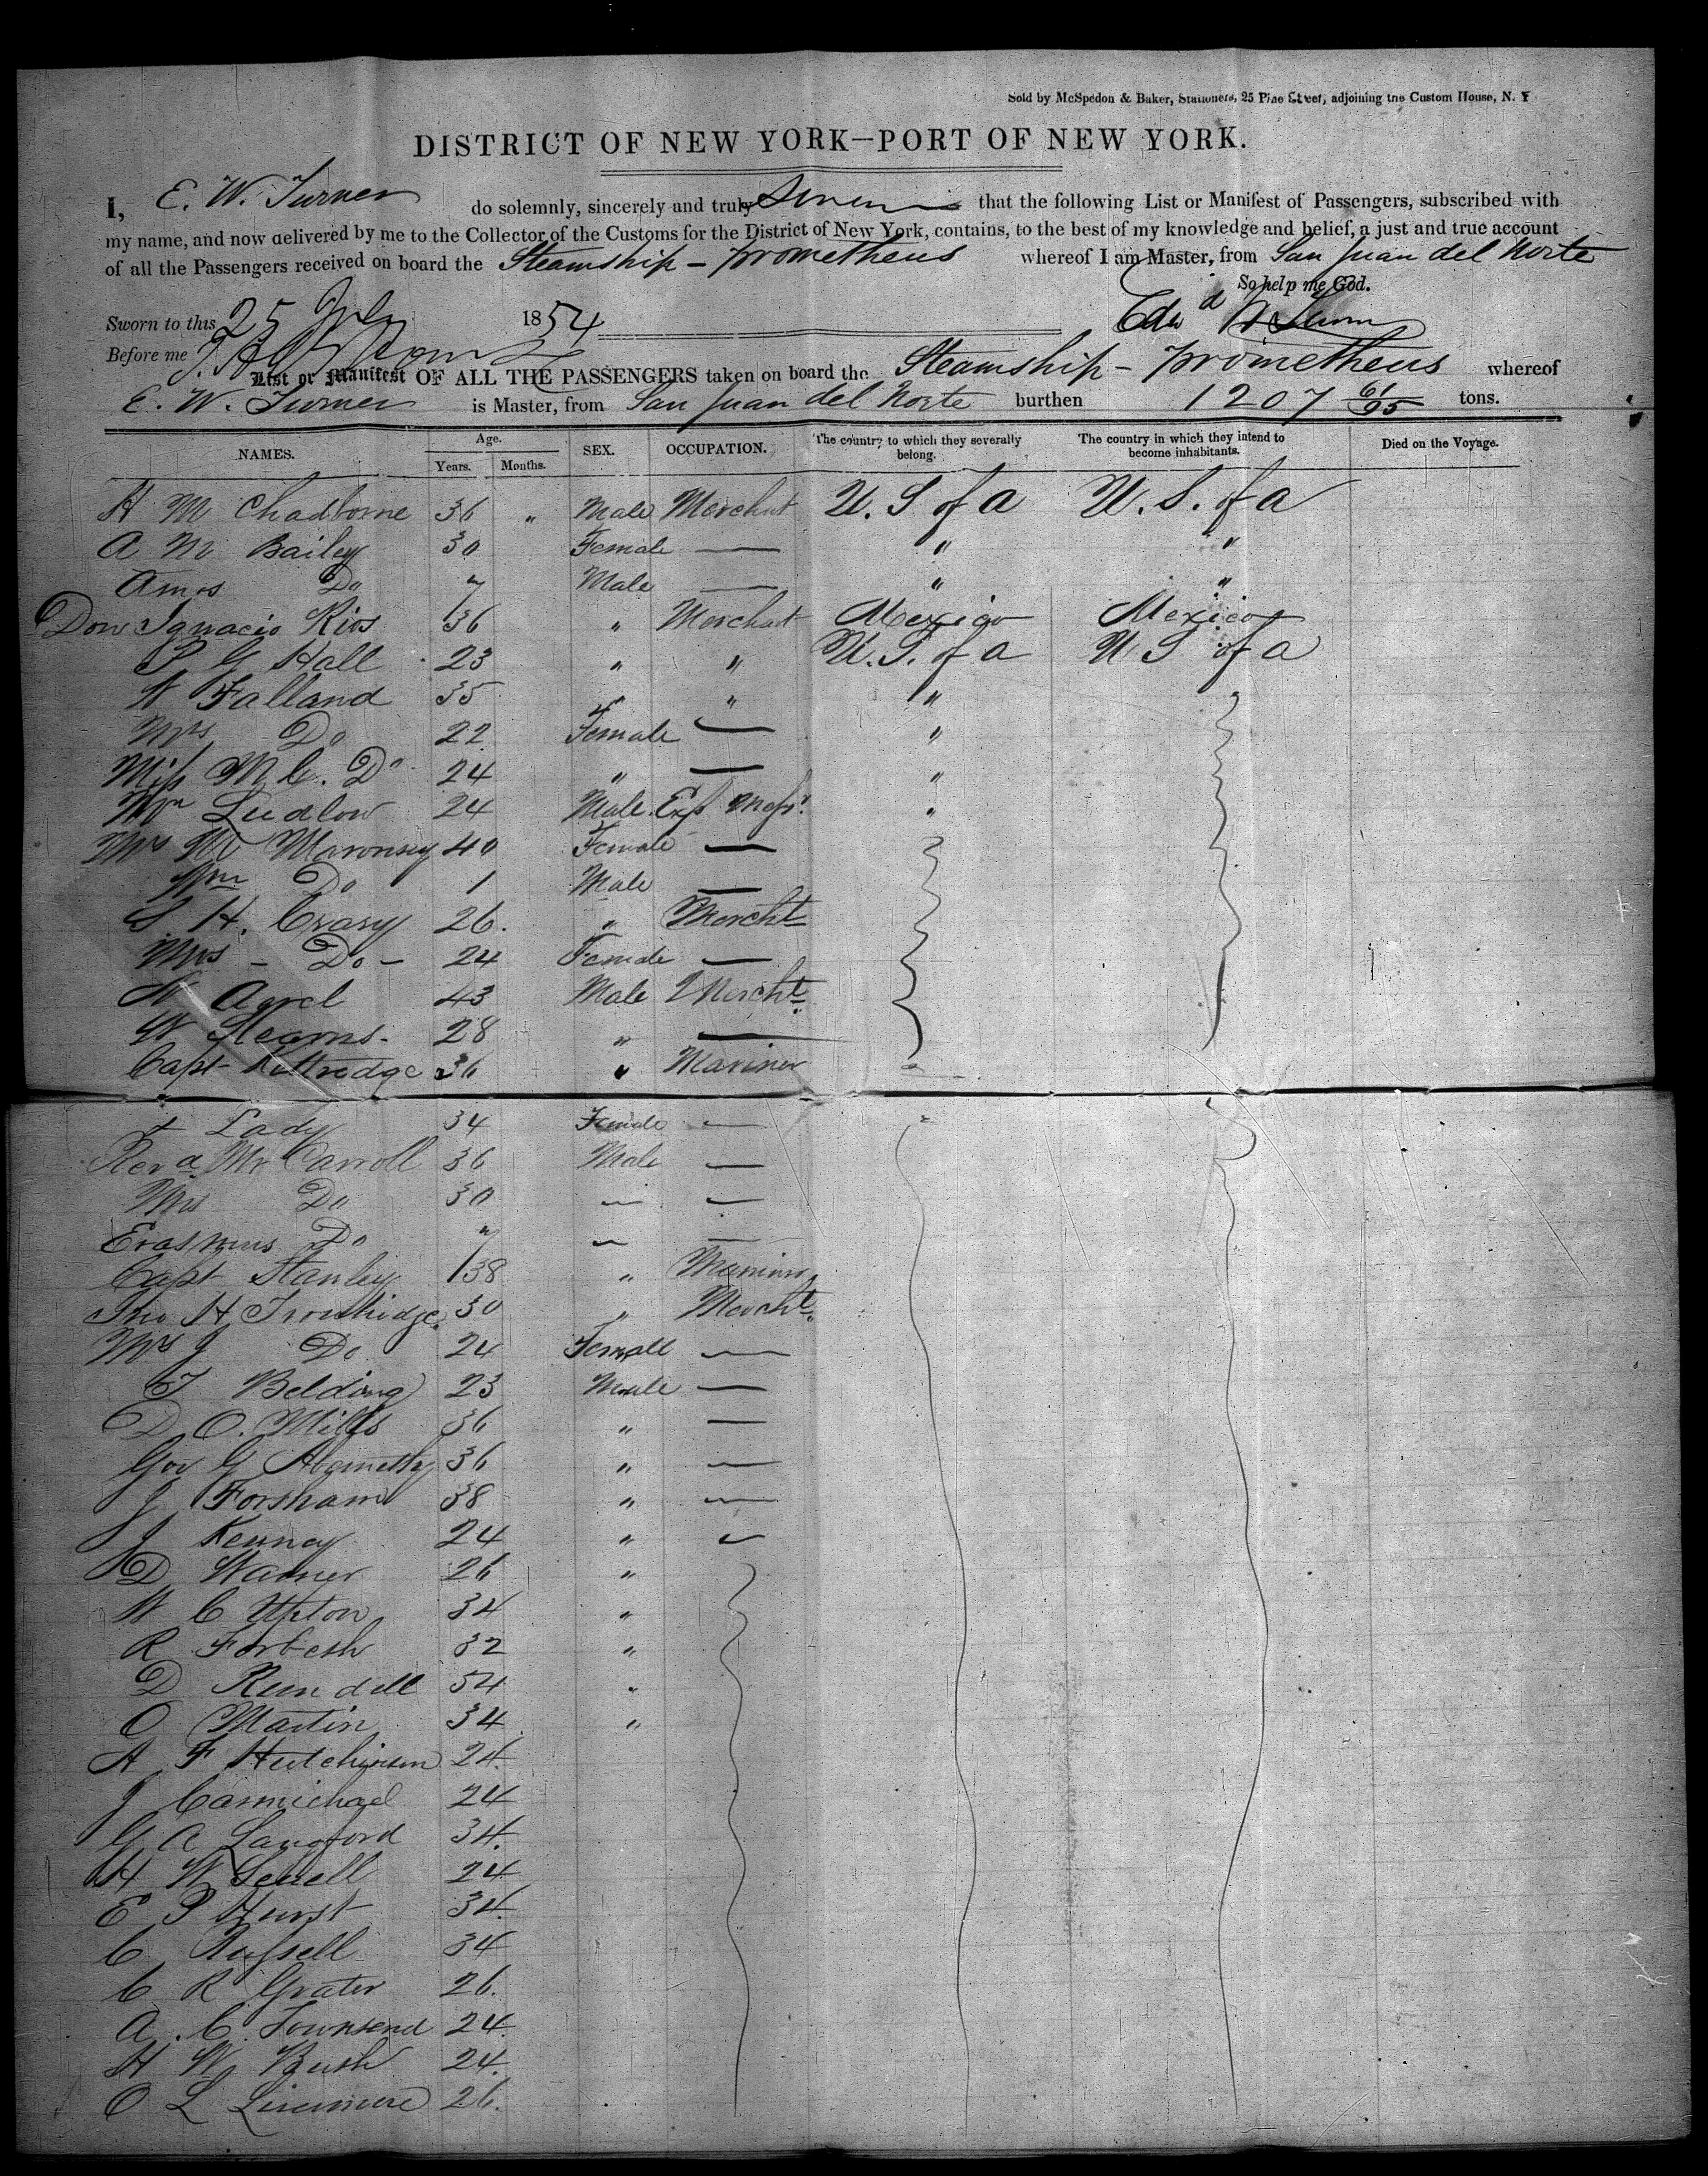 Sold by McSpedon & Baker, Stationers, 25 Pine Street, adjoining the Custom House, N. Y
DISTRICT OF NEW YORK—PORT OF NEW YORK.
I, E. W. Turner do solemnly, sincerely and truly Swear that the following List or Manifest of Passengers, subscribed with
my name, and now delivered by me to the Collector of the Customs for the District of New York, contains, to the best of my knowledge and belief, a just and true account
of all the Passengers received on board the Steamship - Prometheus whereof I am Master, from San Juan del Norte
So help me God.
Sworn to this 25 July 1854 Edwd W Turner
Before me
List or Manifest OF ALL THE PASSENGERS taken on board the Steamship - Prometheus whereof
E. W. Turner is Master, from San Juan del Norte burthen 1207 61/95 tons.
NAMES. Age. Years. Months. SEX. OCCUPATION. The country to which they severally belong. The country in which they intend to become inhabitants. Died on the Voyage.
H M Chadborne 36 " Male Merchat U. S of a U. S. of a
A M Bailey 30 Female — " "
Amos Do 7 Male — " "
Don Ignacio Rios 36 " Merchat Mexico Mexico
P G Hall 23 " " U. S. of a U S of a
W Falland 35 " " "
Mrs Do 22 Female — "
Miss M C. Do 24 " — "
Wm Ludlow 24 Male Exp Messr. "
Mrs W Maronsey 40 Female —
Wm Do 1 Male —
S. H. Crary 26. " Mercht
Mrs - Do - 24 Female —
W Agrel 43 Male Mercht
W Stearns. 28 " —
Capt Kittredge 36 " Mariner
+ Lady 34 Female —
Revd Mr Carroll 36 Male —
Mrs Do 30 — —
Erasmus Do 7 — —
Capt Stanley 38 " Mariner
Jno H Trowbridge. 30 " Mercht
Mrs J Do 24 Female —
T Belding 23 Male —
D O. Mills 36 " —
Gov G Abernethy 36 " —
J Forsham 38 " —
J Kenney 24 " —
D Warner 26 "
W C Upton 34 "
R Forbesh 32 "
D Rundell 54 "
O Martin 34 "
A F Hutchinson 24.
J Carmichael 24
G A Langford 34.
H W Sewell 24
E P Hurst 34.
C Russell 34
C R Grater 26.
A. C. Townsend 24.
H W Bush 24.
O L Livermore 26.